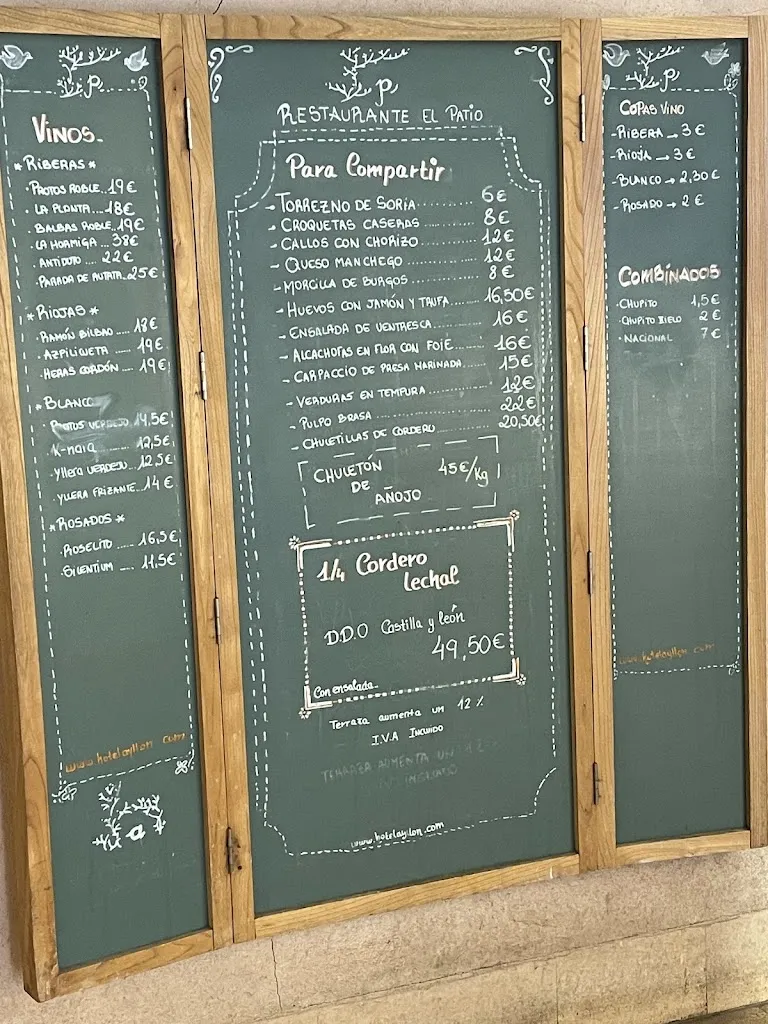 VINOS
* RIBERAS *
· PROTOS ROBLE.. 19€
· LA PLANTA... 18€
· BALBAS ROBLE.. 19€
· LA HORMIGA ... 38€
· ANTIDOTO .... 22€
· PARADA DE AUTATA.. 25€
* RIOJAS *
· RAMÓN BILBAO .... 13€
· AZPILIQUETA .... 19€
· HERAS CORDÓN.... 19€
* BLANCO
· PROTOS VERDEJO 14,5€
· K-NAIA .... 12,5€
· YLLERA VERDEJO ... 12,5€
· YLLERA FRIZANTE.. 14€
* ROSADOS *
· ROSELITO .... 16,5€
· SILENTIUM .... 11,5€
www.hotelayllon.com
P
RESTAURANTE EL PATIO
Para Compartir
- TORREZNO DE SORIA ........ 6€
- CROQUETAS CASERAS ........ 8€
- CALLOS CON CHORIZO ........ 12€
- QUESO MANCHEGO ........ 12€
- MORCILLA DE BURGOS ........ 8€
- HUEVOS CON JAMÓN Y TRUFA .... 16,50€
- ENSALADA DE VENTRESCA ........ 16€
- ALCACHOFAS EN FLOR CON FOIE ... 16€
- CARPACCIO DE PRESA MARINADA .... 15€
- VERDURAS EN TEMPURA ........ 12€
- PULPO BRASA ........ 22€
- CHULETILLAS DE CORDERO ........ 20,50€
CHULETÓN 45€/Kg
DE
AÑOJO
1/4 Cordero
lechal
D.D.O Castilla y león
49,50€
Con ensalada..
Terraza aumenta un 12 %
I.V.A INCLUIDO
TERRAZA AUMENTA UN
www.hotelayllon.com
P
COPAS VINO
- RIBERA → 3€
- RIOJA → 3€
- BLANCO → 2,30€
- ROSADO → 2€
COMBINADOS
· CHUPITO 1,5€
· CHUPITO HIELO 2€
· NACIONAL 7€
www.hotelayllon.com